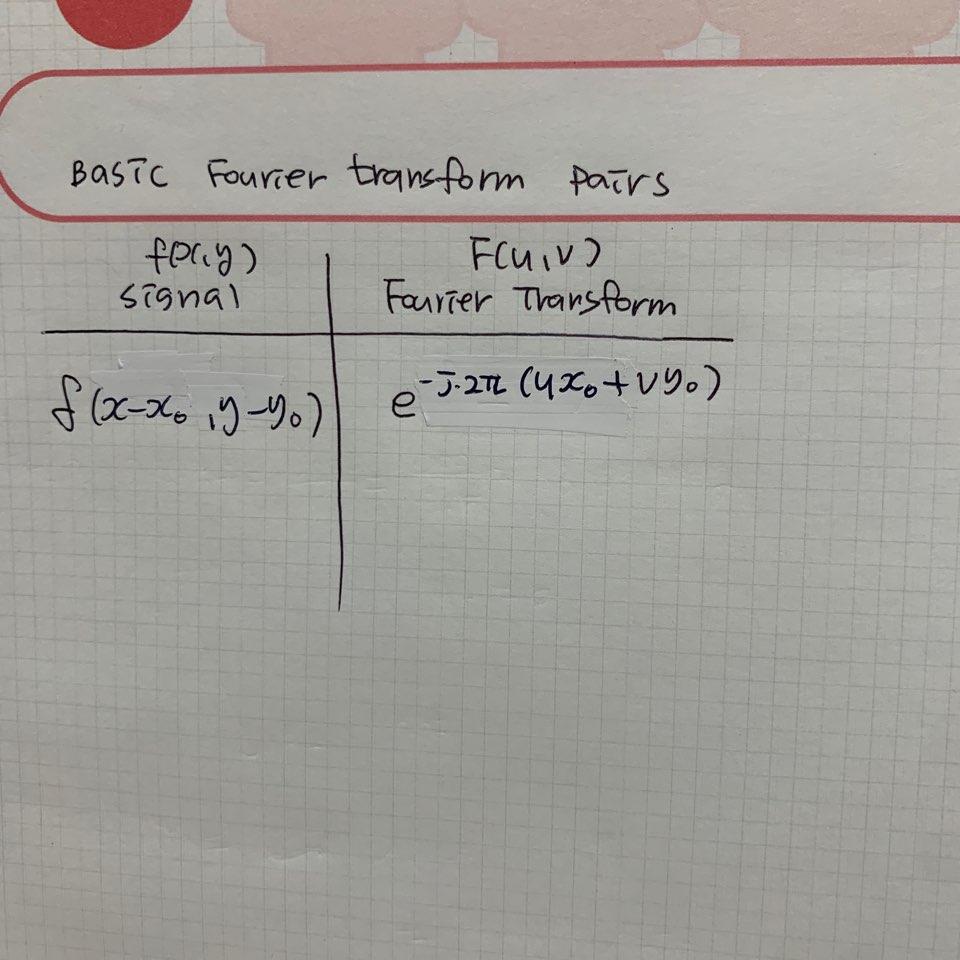 Basic Fourier transform pairs
f(x,y) F(u,v)
signal Fourier Transform
f(x-x₀,y-y₀) e^-j·2π(ux₀+vy₀)